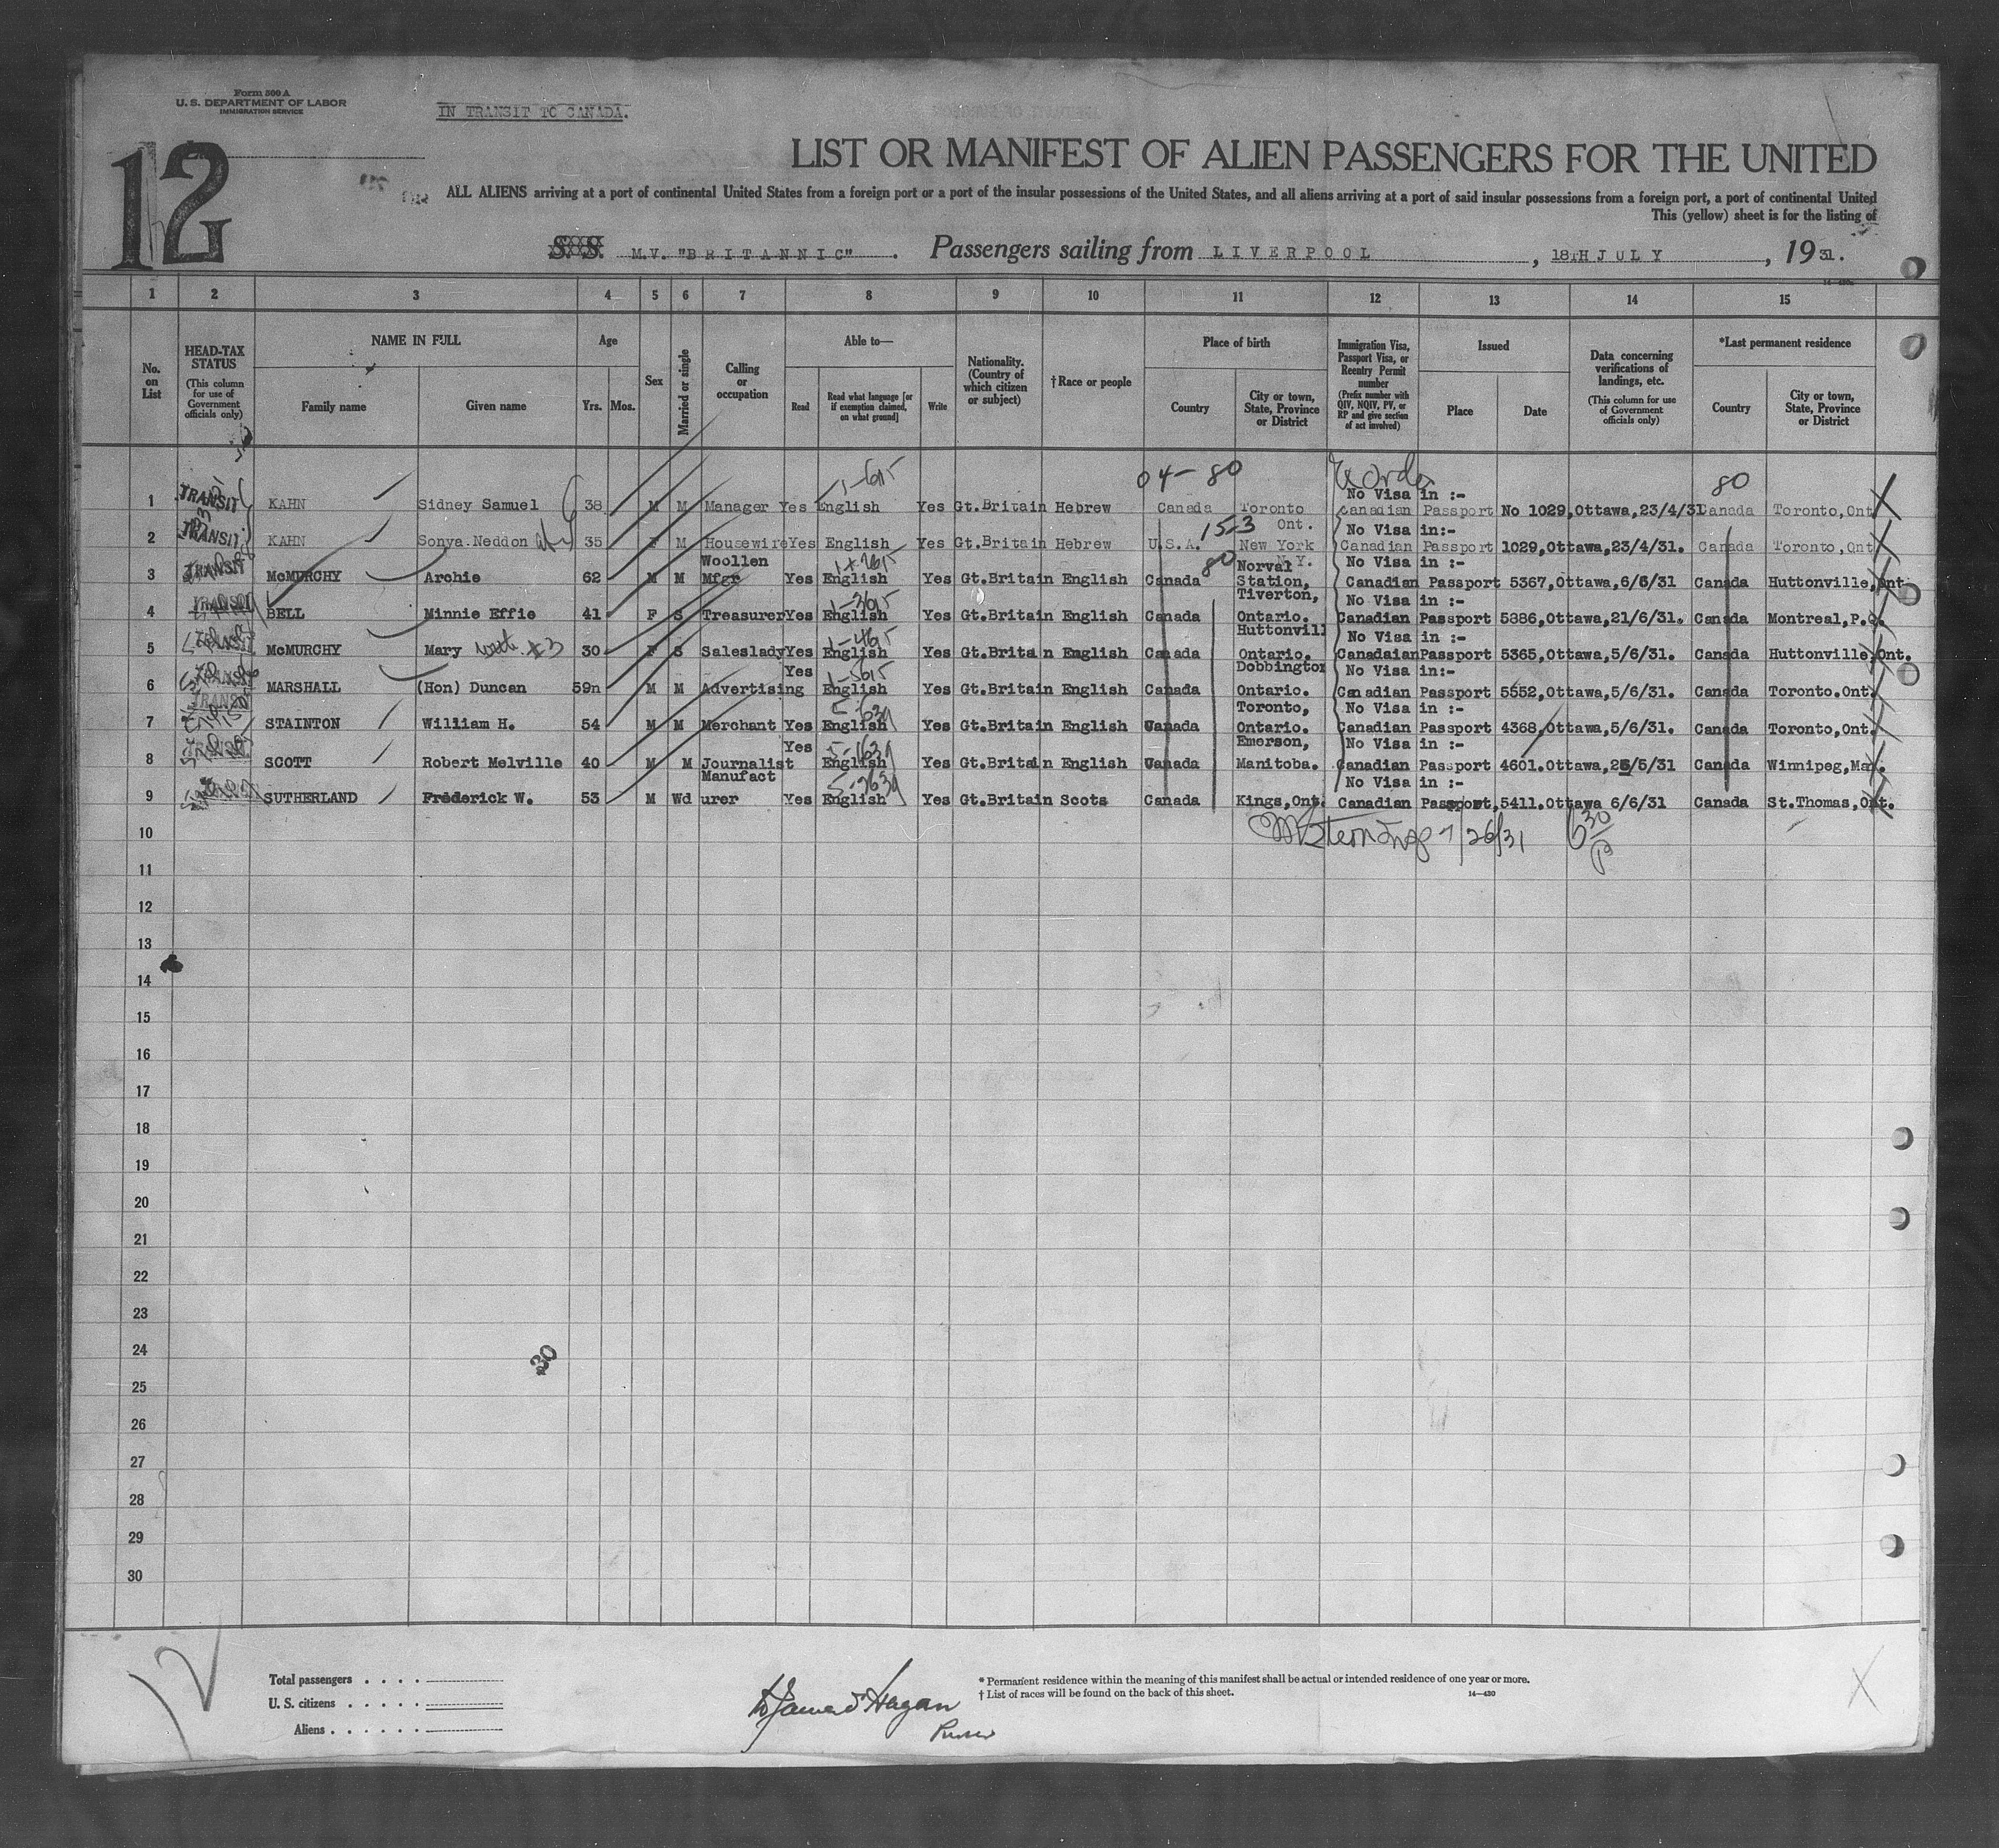 Form 500 A
U. S. DEPARTMENT OF LABOR
IMMIGRATION SERVICE
IN TRANSIT TO CANADA.
12
LIST OR MANIFEST OF ALIEN PASSENGERS FOR THE UNITED
ALL ALIENS arriving at a port of continental United States from a foreign port or a port of the insular possessions of the United States, and all aliens arriving at a port of said insular possessions from a foreign port, a port of continental United
This (yellow) sheet is for the listing of
S. S. M.V. "BRITANNIC". Passengers sailing from LIVERPOOL, 18TH JULY, 1931.
1 2 3 4 5 6 7 8 9 10 11 12 13 14 15
No. on List
HEAD-TAX STATUS (This column for use of Government officials only)
NAME IN FULL
Family name
Given name
Age
Yrs. Mos.
Sex
Married or single
Calling or occupation
Able to—
Read
Read what language [or if exemption claimed, on what ground]
Write
Nationality. (Country of which citizen or subject)
†Race or people
Place of birth
Country
City or town, State, Province or District
Immigration Visa, Passport Visa, or Reentry Permit number (Prefix number with QIV, NQIV, PV, or RP and give section of act involved)
Issued
Place
Date
Data concerning verifications of landings, etc. (This column for use of Government officials only)
*Last permanent residence
Country
City or town, State, Province or District
04-80 80
1 TRANSIT KAHN Sidney Samuel 38 M M Manager Yes English Yes Gt.Britain Hebrew Canada Toronto Ont. No Visa in :- Canadian Passport No 1029,Ottawa,23/4/31 Canada Toronto,Ont
15-3
2 TRANSIT KAHN Sonya Neddon 35 F M Housewife Yes English Yes Gt.Britain Hebrew U.S.A. New York N.Y. No Visa in:- Canadian Passport 1029,Ottawa,23/4/31. Canada Toronto,Ont
80
3 TRANSIT McMURCHY Archie 62 M M Woollen Mfgr Yes English Yes Gt.Britain English Canada Norval Station, No Visa in :- Canadian Passport 5367,Ottawa,6/6/31 Canada Huttonville,Ont.
4 TRANSIT BELL Minnie Effie 41 F S Treasurer Yes English Yes Gt.Britain English Canada Tiverton, Ontario. No Visa in :- Canadian Passport 5886,Ottawa,21/6/31. Canada Montreal,P.Q.
5 TRANSIT McMURCHY Mary with #3 30 F S Saleslady Yes English Yes Gt.Britain English Canada Huttonvill Ontario. No Visa in :- Canadaian Passport 5365,Ottawa,5/6/31. Canada Huttonville,Ont.
6 TRANSIT MARSHALL (Hon) Duncan 59n M M Advertising Yes English Yes Gt.Britain English Canada Dobbington Ontario. No Visa in:- Canadian Passport 5552,Ottawa,5/6/31. Canada Toronto.Ont.
7 TRANSIT STAINTON William H. 54 M M Merchant Yes English Yes Gt.Britain English Canada Toronto, Ontario. No Visa in :- Canadian Passport 4368,Ottawa,5/6/31. Canada Toronto,Ont.
8 TRANSIT SCOTT Robert Melville 40 M M Journalist Yes English Yes Gt.Britain English Canada Emerson, Manitoba. No Visa in :- Canadian Passport 4601.Ottawa,25/5/31 Canada Winnipeg,Man.
9 SUTHERLAND Frederick W. 53 M Wd Manufact urer Yes English Yes Gt.Britain Scots Canada Kings,Ont. No Visa in :- Canadian Passport,5411.Ottawa 6/6/31 Canada St.Thomas,Ont.
10 7/26/31
11
12
13
14
15
16
17
18
19
20
21
22
23
24 30
25
26
27
28
29
30
12
Total passengers
U. S. citizens
Aliens
Hagan
Purser
* Permanent residence within the meaning of this manifest shall be actual or intended residence of one year or more.
† List of races will be found on the back of this sheet.
14—430